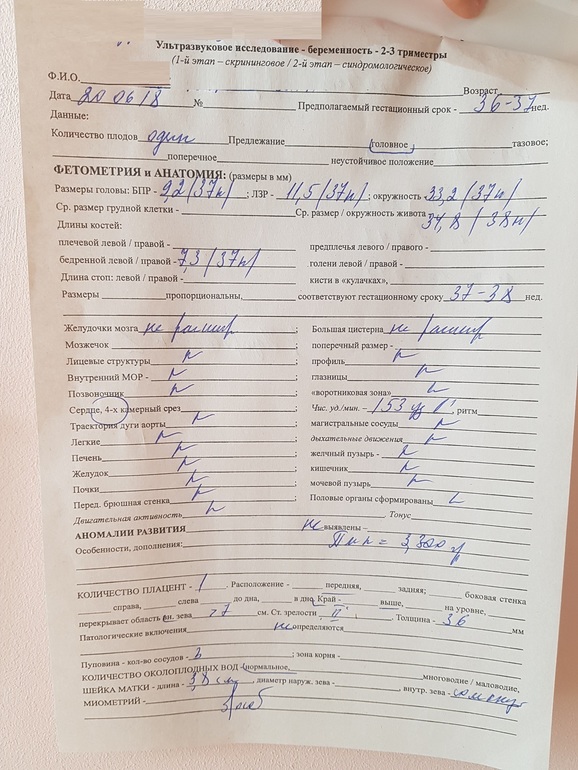 Ультразвуковое исследование - беременность - 2-3 триместры
(1-й этап – скрининговое / 2-й этап – синдромологическое)
Ф.И.О. Возраст
Дата 20 06 18 № Предполагаемый гестационный срок - 36-37 нед.
Данные:
Количество плодов один Предлежание головное тазовое;
поперечное неустойчивое положение
ФЕТОМЕТРИЯ и АНАТОМИЯ: (размеры в мм)
Размеры головы: БПР - 9,2 (37н) ; ЛЗР - 11,5 (37н) ; окружность 33,2 (37н)
Ср. размер грудной клетки - Ср. размер / окружность живота 34,8 (38н)
Длины костей:
плечевой левой / правой - предплечья левого / правого -
бедренной левой / правой - 7,3 (37н) голени левой / правой -
Длина стоп: левой / правой - кисти в «кулачках»,
Размеры пропорциональны, соответствуют гестационному сроку 37-38 нед.
Желудочки мозга не расшир ; Большая цистерна не расшир
Мозжечок ; поперечный размер -
Лицевые структуры ; профиль
Внутренний МОР - ; глазницы
Позвоночник ; «воротниковая зона»
Сердце, 4-х камерный срез ; Чис. уд./мин. – 153 уд , ритм
Траектория дуги аорты ; магистральные сосуды
Легкие ; дыхательные движения
Печень ; желчный пузырь -
Желудок ; кишечник
Почки ; мочевой пузырь
Перед. брюшная стенка ; Половые органы сформированы
Двигательная активность Тонус
АНОМАЛИИ РАЗВИТИЯ не выявлены –
Особенности, дополнения: = 3,300 гр
КОЛИЧЕСТВО ПЛАЦЕНТ - 1 . Расположение - передняя, задняя; боковая стенка
справа, слева до дна, в дна. Край - выше, на уровне,
перекрывает область вн. зева >7 см. Ст. зрелости II . Толщина - 36 мм
Патологические включения не определяются
Пуповина - кол-во сосудов - 3 ; зона корня -
КОЛИЧЕСТВО ОКОЛОПЛОДНЫХ ВОД -(нормальное, многоводие / маловодие,
ШЕЙКА МАТКИ - длина - 38 см , диаметр наруж. зева - , внутр. зева - сомкнут
МИОМЕТРИЙ -